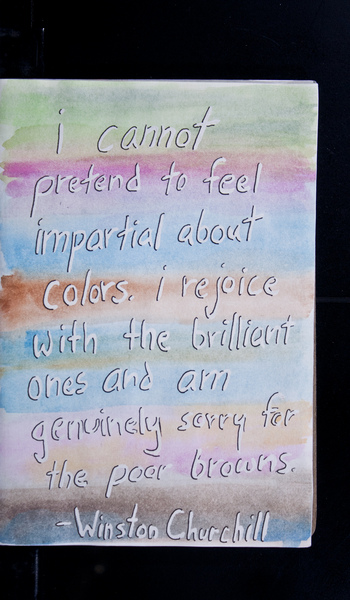 i cannot
pretend to feel
impartial about
colors. i rejoice
with the brillient
ones and am
genuinely sorry for
the poor browns.
-Winston Churchill